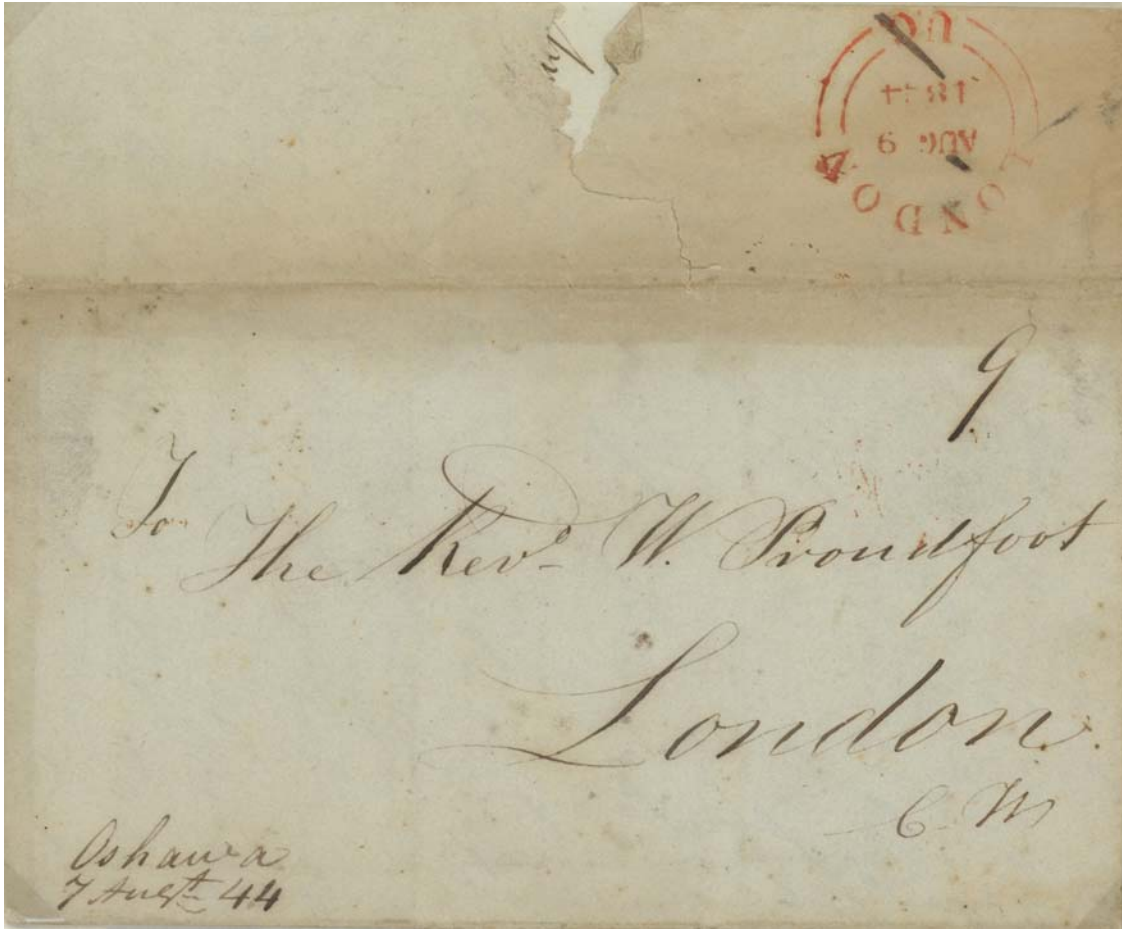 LONDON
AUG 9
1844
U.C.
9
To
The Revd. W. Proudfoot
London
C. W
Oshawa
7 Augt. 44